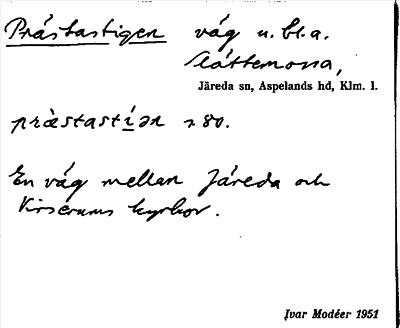 Prästastigen väg u. bl.a.
Slåttemossa,
Järeda sn, Aspelands hd, Klm. l.
præ̀stastíən r 80.
En väg mellan Järeda och
Virserums kyrkor.
Ivar Modéer 1951